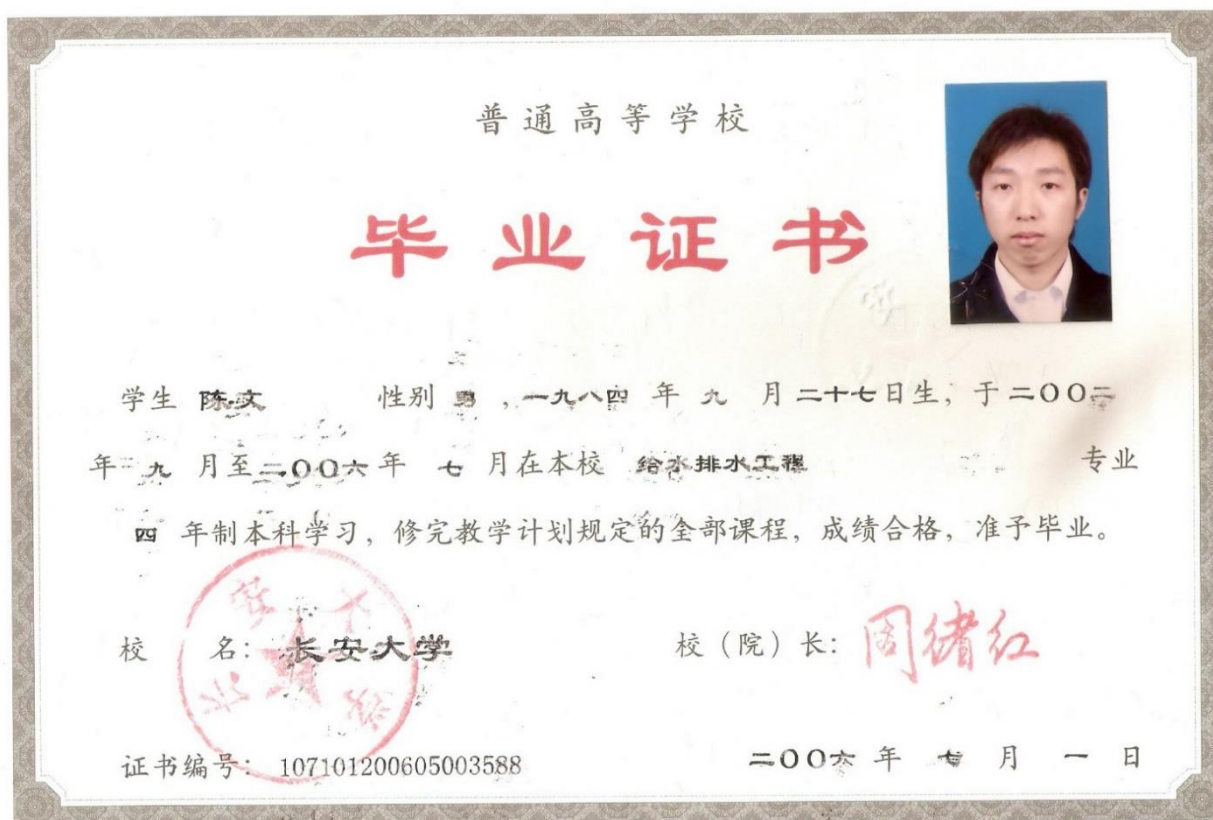 普通高等学校
毕业证书
学生 陈文 性别 男 ,一九八四 年 九 月 二十七日生, 于 二〇〇二
年 九 月至 二〇〇六 年 七 月在本校 给水排水工程 专业
四 年制本科学习, 修完教学计划规定的全部课程, 成绩合格, 准予毕业。
校 名: 长安大学 校(院)长: 周绪红
长安大学
证书编号: 107101200605003588 二〇〇六 年 七 月 一 日